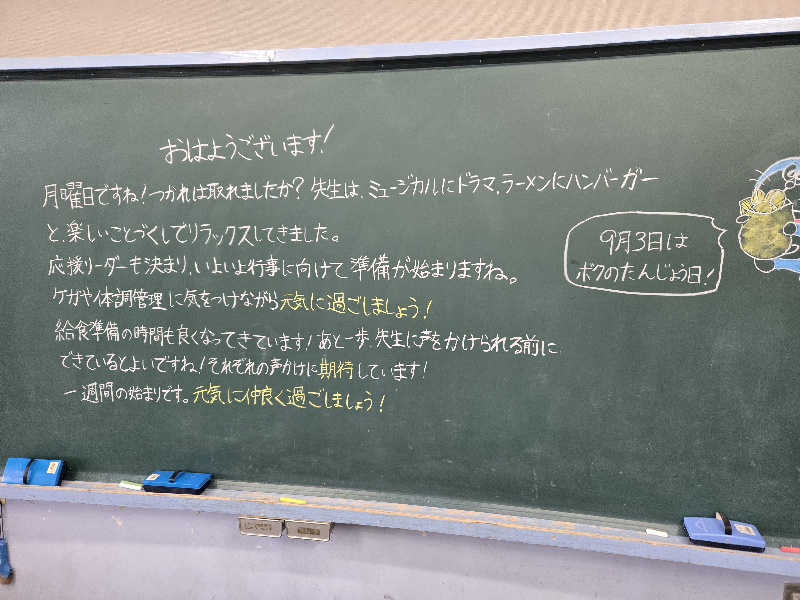 おはようございます!
月曜日ですね!つかれは取れましたか?先生は、ミュージカルにドラマ、ラーメンにハンバーガー
と、楽しいことづくしでリラックスしてきました。
応援リーダーも決まり、いよいよ行事に向けて準備が始まりますね。
ケガや体調管理に気をつけながら元気に過ごしましょう!
給食準備の時間も良くなってきています!あと一歩、先生に声をかけられる前に
できているとよいですね!それぞれの声かけに期待しています!
一週間の始まりです。元気に仲良く過ごしましょう!
9月3日は
ボクのたんじょう日!